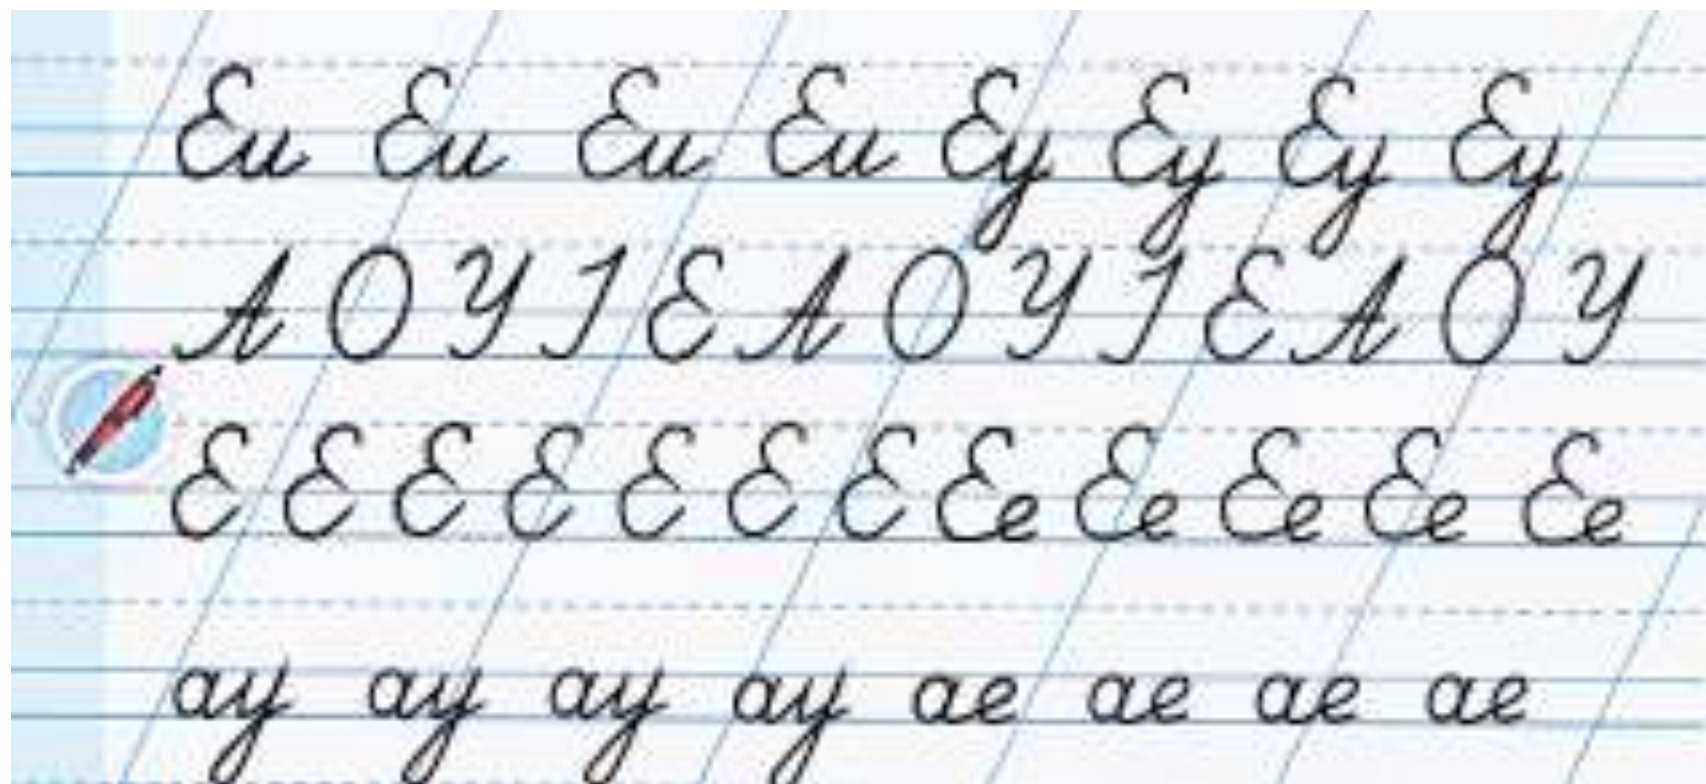 Еи Еи Еи Еи Еу Еу Еу Еу
А О У І Е А О У І Е А О У
Е Е Е Е Е Е Е Ее Ее Ее Ее Ее
ау ау ау ау ае ае ае ае